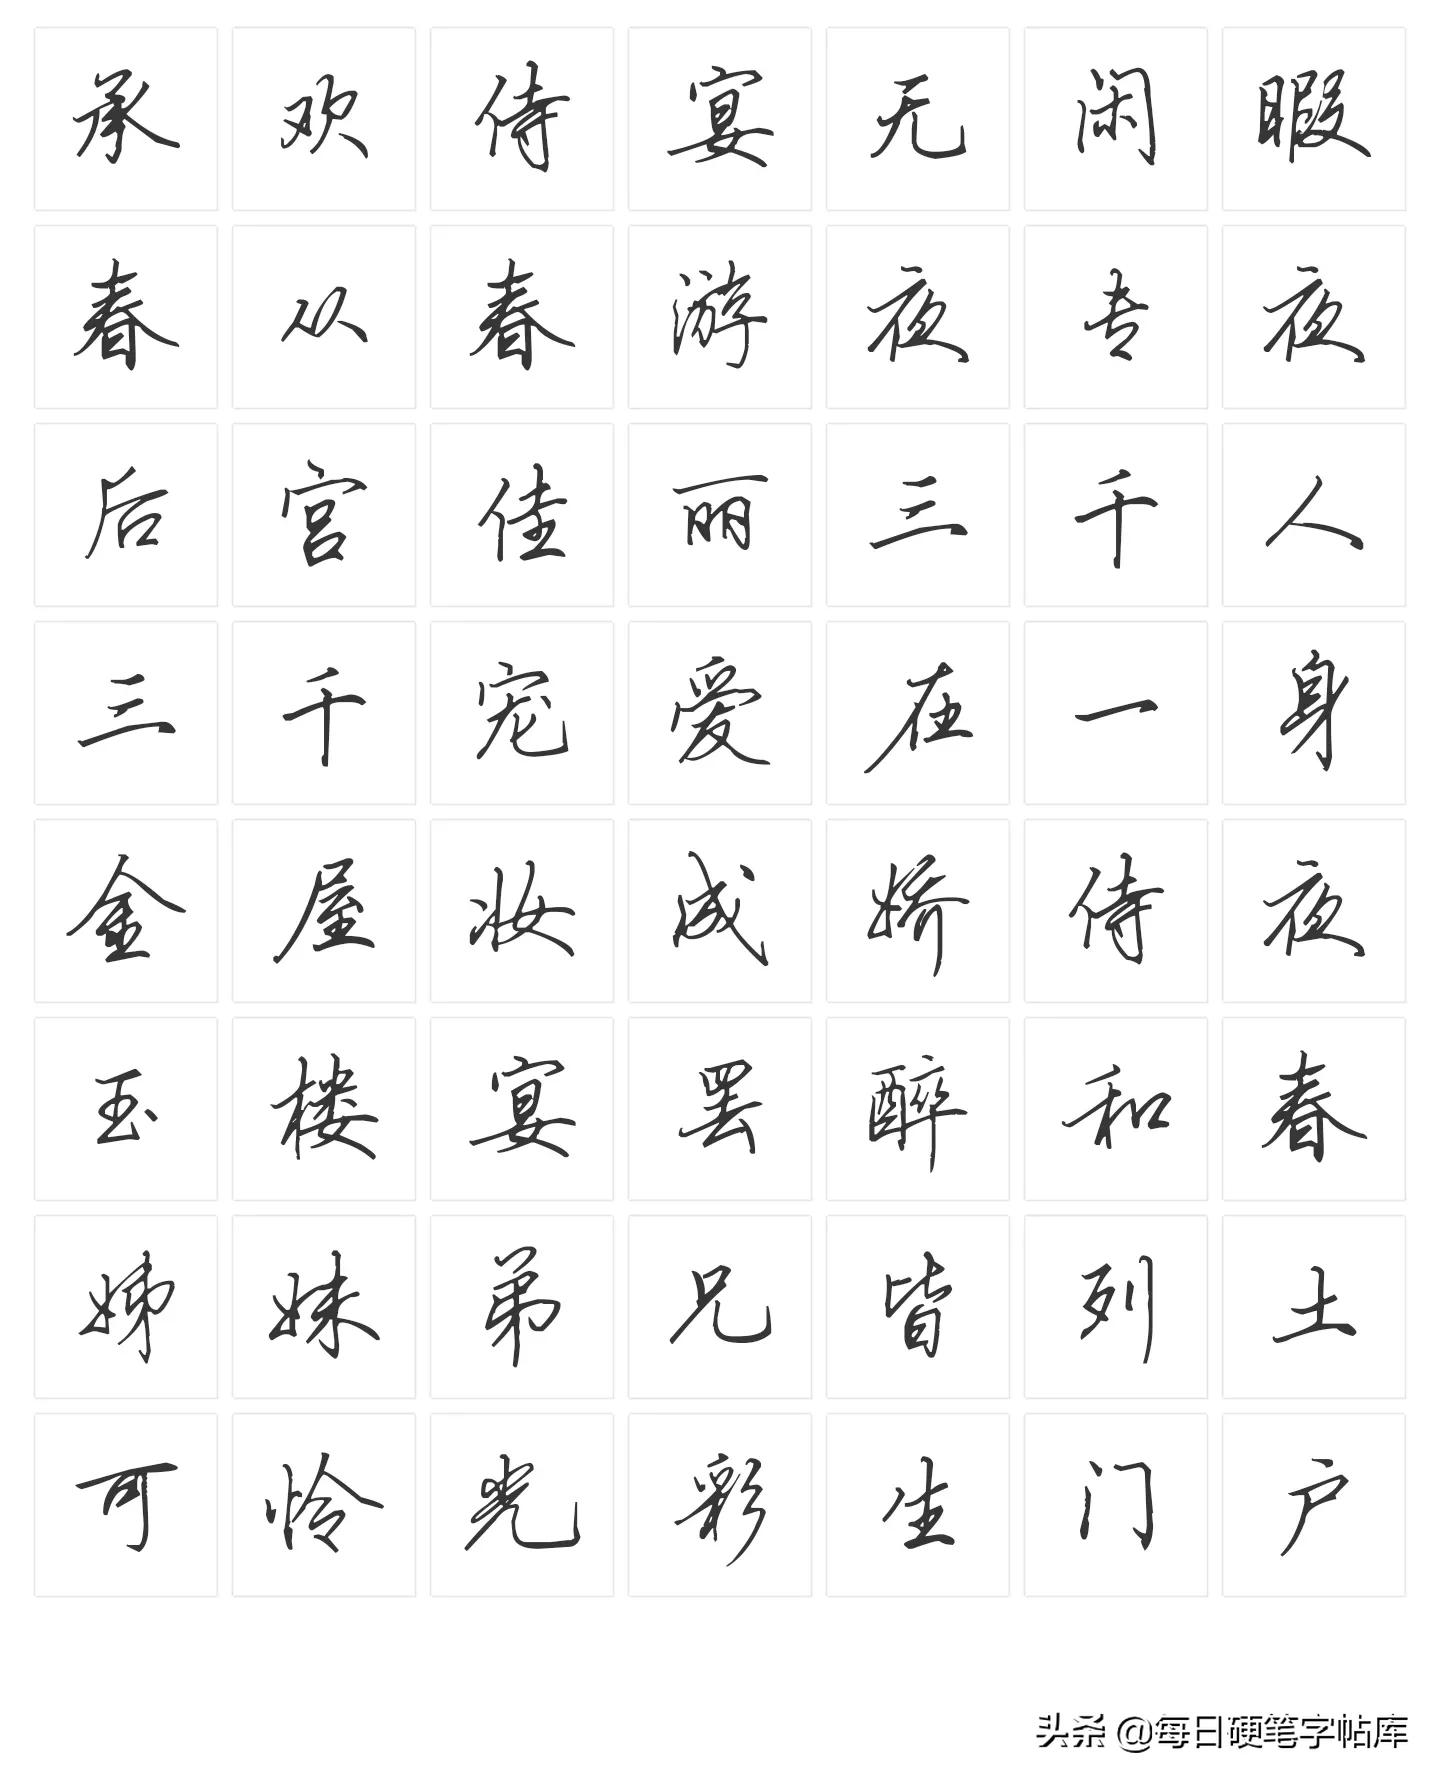 承欢侍宴无闲暇
春从春游夜专夜
后宫佳丽三千人
三千宠爱在一身
金屋妆成娇侍夜
玉楼宴罢醉和春
姊妹弟兄皆列土
可怜光彩生门户
头条 @每日硬笔字帖库